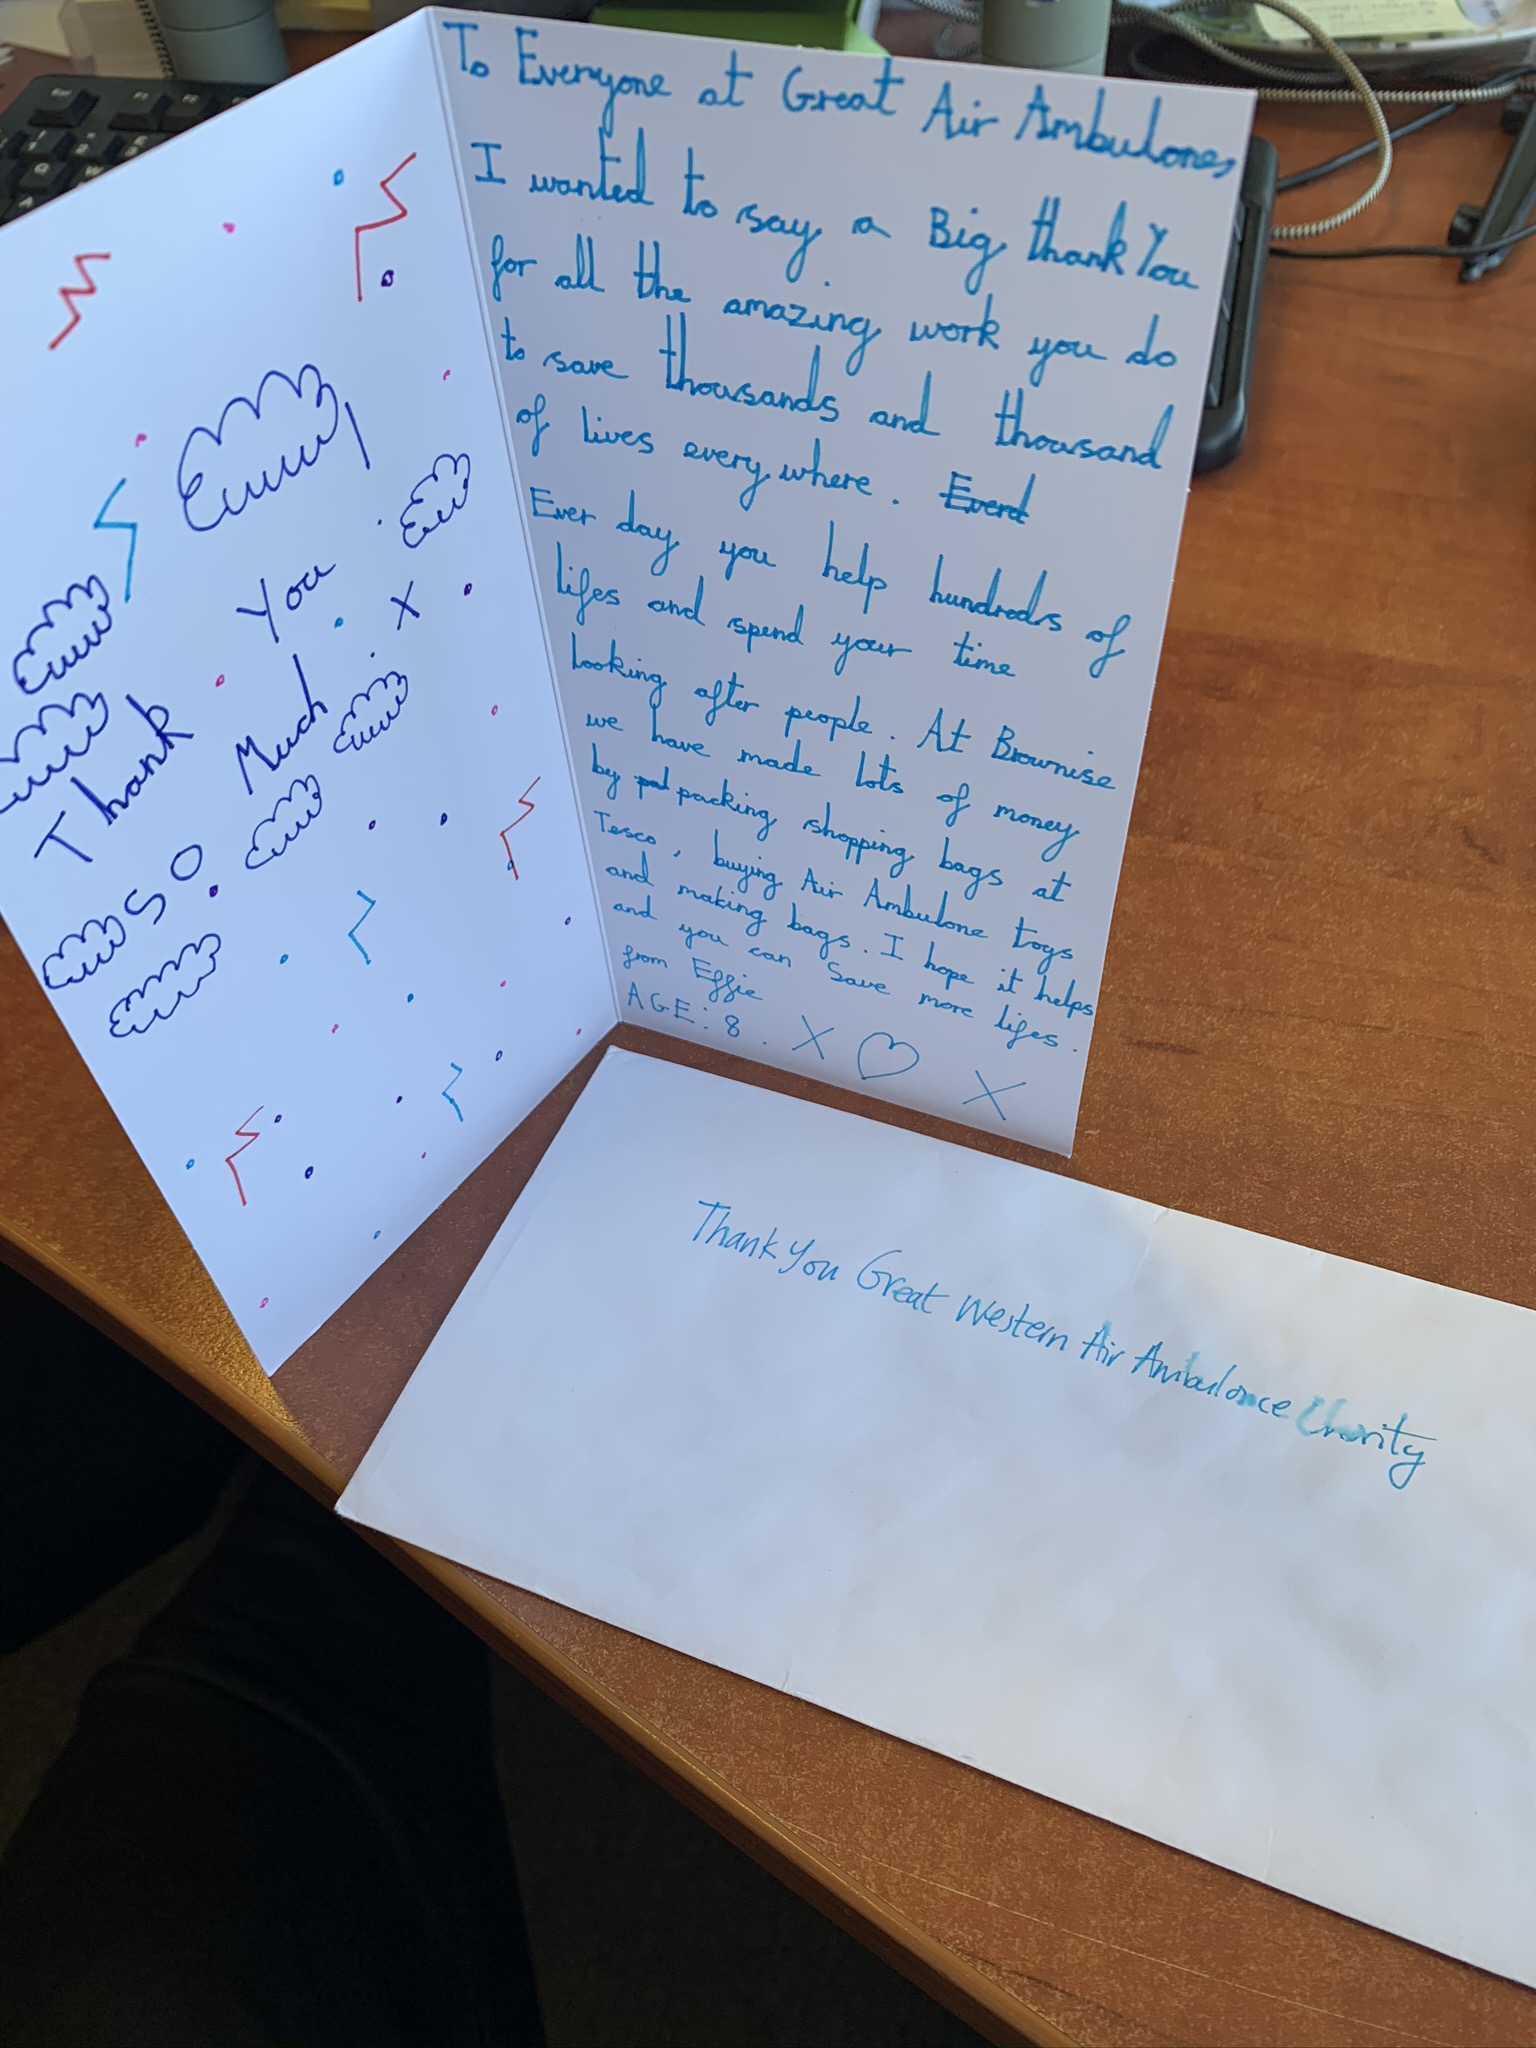 Thank You
SO Much X
To Everyone at Great Air Ambulone,
I wanted to say a Big thank You
for all the amazing work you do
to save thousands and thousand
of lives every where. Everd
Ever day you help hundreds of
lifes and spend your time
looking after people. At Brownise
we have made lots of money
by pat packing shopping bags at
Tesco, buying Air Ambulone toys
and making bags. I hope it helps
and you can Save more lifes.
from Effie
AGE: 8. X ♡ X
Thank You Great Western Air Ambulance Charity